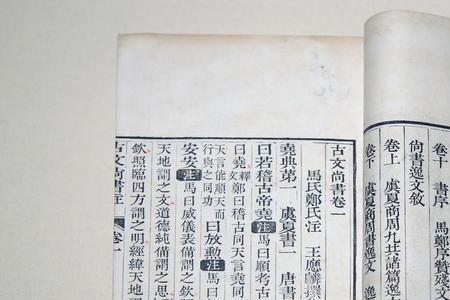 卷十 書序 馬鄭序贊殘文
尚書逸文敘
卷上 虞夏商周九七篇篇逸
卷下 虞夏商周書 逸
古文尚書卷一
馬氏鄭氏注 王應麟撰
堯典第一 虞夏書一 唐書
曰若稽古帝堯 注 馬曰順考古
曰堯釋文鄭曰稽古同天言堯同
天言能順天而
行與之同功 曰放勳 注 馬曰
安安 注 馬曰威儀表備謂之欽
天地謂之文道德純備謂之思
欽照臨四方謂之明經緯天地
古文尚書注 卷一